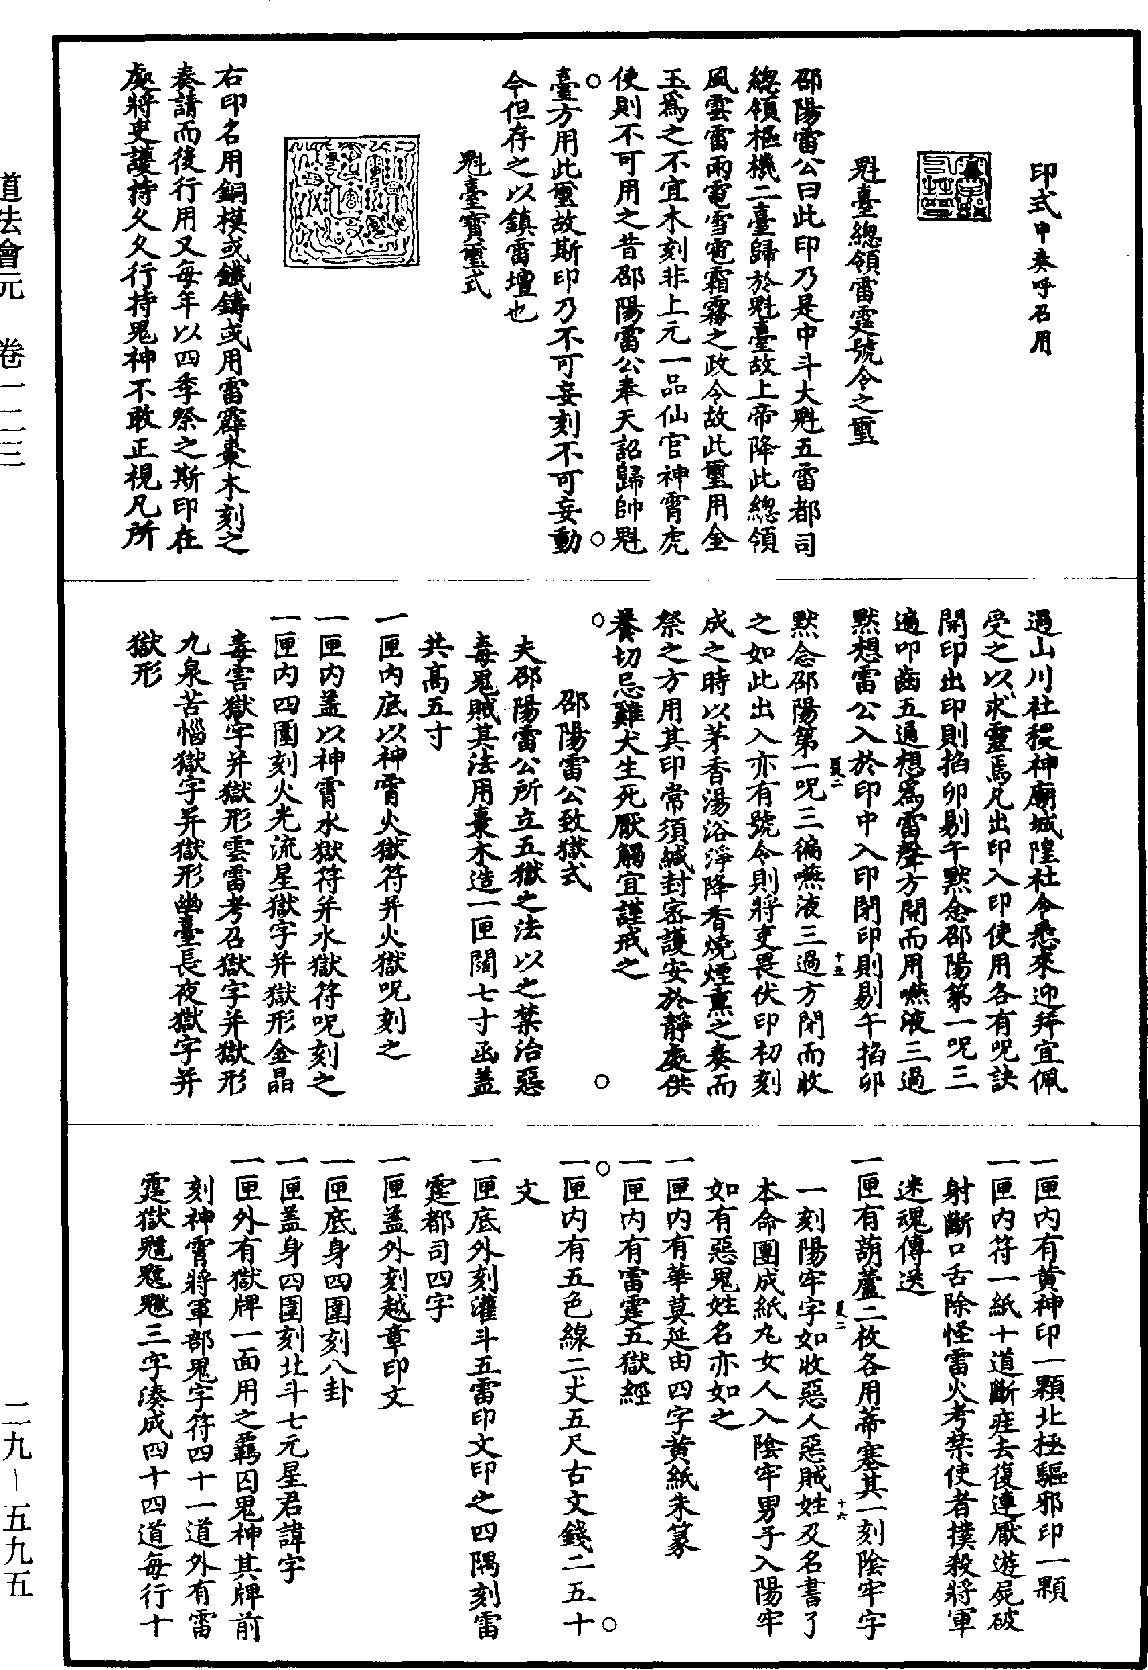 印式申奏呼召用
魁臺總領雷霆號令之璽
邵陽雷公曰此印乃是中斗大魁五雷都司
總領樞機二臺歸於魁臺故上帝降此總領
風雲雷雨電雪雹霜霧之政令故此璽用金
玉爲之不宜木刻非上元一品仙官神霄虎
使則不可用之昔邵陽雷公奉天詔歸帥魁
臺方用此璽故斯印乃不可妄刻不可妄動
今但存之以鎮雷壇也
魁臺寶璽式
右印名用銅模或鐵鑄或用雷霹棗木刻之
奏請而後行用又每年以四季祭之斯印在
處將吏護持久久行持鬼神不敢正視凡所
過山川社稷神廟城隍社令悉來迎拜宜佩
受之以求靈焉凡出印入印使用各有呪訣
開印出印則掐卯剔午默念邵陽第一呪三
遍叩齒五通想爲雷聲方開而用嚥液三過
默想雷公入於印中入印閉印則剔午掐卯
默念邵陽第一呪三徧嚥液三過方閉而收
之如此出入亦有號令則將吏畏伏印初刻
成之時以茅香湯浴淨降香燒煙熏之奏而
祭之方用其印常須緘封密護安於靜處供
養切忌雞犬生死厭觸宜謹戒之
邵陽雷公致獄式
夫邵陽雷公所立五獄之法以之禁治惡
毒鬼賊其法用棗木造一匣闊七寸函蓋
共高五寸
一匣内底以神霄火獄符并火獄呪刻之
一匣内蓋以神霄水獄符并水獄符呪刻之
一匣内四圍刻火光流星獄字并獄形金晶
毒害獄字并獄形雲雷考召獄字并獄形
九泉苦惱獄字并獄形幽臺長夜獄字并
獄形
一匣内有黄神印一顆北極驅邪印一顆
一匣内符一紙十道斷疰去復連厭遊屍破
射斷口舌除怪雷火考禁使者撲殺將軍
迷魂傳送
一匣有葫蘆二枚各用蒂塞其一刻陰牢字
一刻陽牢字如收惡人惡賊姓及名書了
本命團成紙丸女人入陰牢男子入陽牢
如有惡鬼姓名亦如之
一匣内有華莫延由四字黄紙朱篆
一匣内有雷霆五獄經
一匣内有五色線二丈五尺古文錢二五十
文
一匣底外刻灌斗五雷印文印之四隅刻雷
霆都司四字
一匣蓋外刻越章印文
一匣底身四圍刻八卦
一匣蓋身四圍刻北斗七元星君諱字
一匣外有獄牌一面用之羈囚鬼神其牌前
刻神霄將軍部鬼字符四十一道外有雷
三字湊成四十四道每行十
道法會元 卷一二三
二九－五九五
夏二
十五
夏二
十六